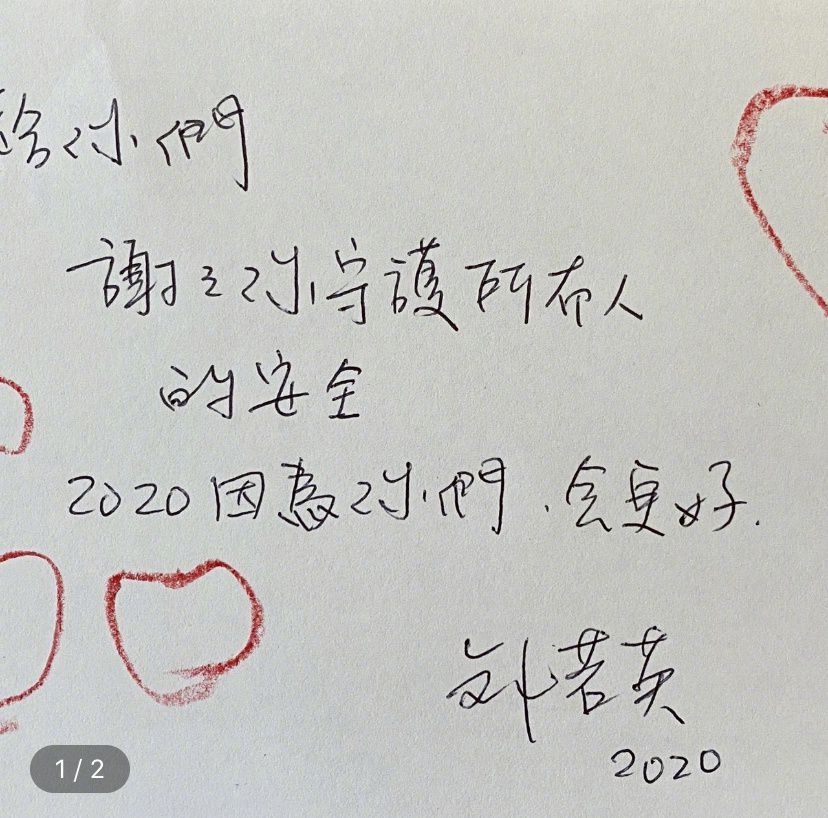 給你們
謝々你守護所有人
的安全
2020因為你們、会更好.
刘若英
2020
1/2